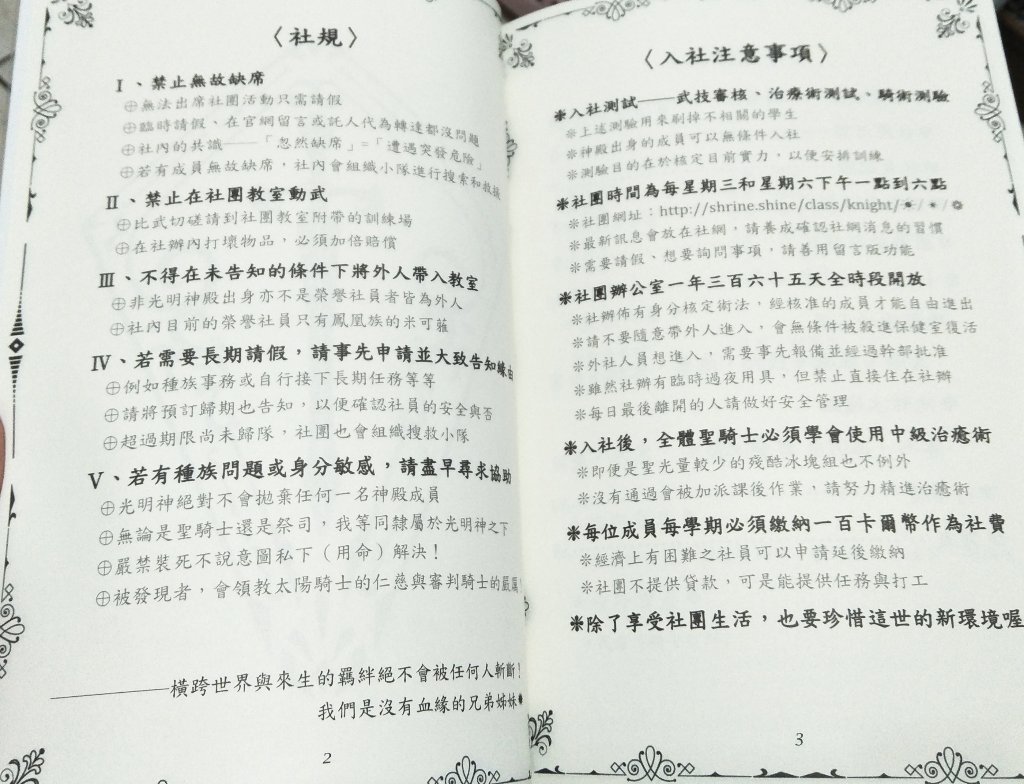 〈社規〉
Ⅰ、禁止無故缺席
⊕無法出席社團活動只需請假
⊕臨時請假、在官網留言或託人代為轉達都沒問題
⊕社內的共識——「忽然缺席」=「遭遇突發危險」
⊕若有成員無故缺席，社內會組織小隊進行搜索和救援
Ⅱ、禁止在社團教室動武
⊕比武切磋請到社團教室附帶的訓練場
⊕在社辦內打壞物品，必須加倍賠償
Ⅲ、不得在未告知的條件下將外人帶入教室
⊕非光明神殿出身亦不是榮譽社員者皆為外人
⊕社內目前的榮譽社員只有鳳凰族的米可蕥
Ⅳ、若需要長期請假，請事先申請並大致告知緣由
⊕例如種族事務或自行接下長期任務等等
⊕請將預訂歸期也告知，以便確認社員的安全與否
⊕超過期限尚未歸隊，社團也會組織搜救小隊
Ⅴ、若有種族問題或身分敏感，請盡早尋求協助
⊕光明神絕對不會拋棄任何一名神殿成員
⊕無論是聖騎士還是祭司，我等同隸屬於光明神之下
⊕嚴禁裝死不說意圖私下（用命）解決！
⊕被發現者，會領教太陽騎士的仁慈與審判騎士的嚴厲！
————橫跨世界與來生的羈絆絕不會被任何人斬斷！
我們是沒有血緣的兄弟姊妹
2
〈入社注意事項〉
※入社測試——武技審核、治療術測試、騎術測驗
※上述測驗用來刷掉不相關的學生
※神殿出身的成員可以無條件入社
※測驗目的在於核定目前實力，以便安排訓練
※社團時間為每星期三和星期六下午一點到六點
※社團網址：http://shrine.shine/class/knight/
※最新訊息會放在社網，請養成確認社網消息的習慣
※需要請假、想要詢問事項，請善用留言版功能
※社團辦公室一年三百六十五天全時段開放
※社辦佈有身分核定術法，經核准的成員才能自由進出
※請不要隨意帶外人進入，會無條件被殺進保健室復活
※外社人員想進入，需要事先報備並經過幹部批准
※雖然社辦有臨時過夜用具，但禁止直接住在社辦
※每日最後離開的人請做好安全管理
※入社後，全體聖騎士必須學會使用中級治癒術
※即便是聖光量較少的殘酷冰塊組也不例外
※沒有通過會被加派課後作業，請努力精進治癒術
※每位成員每學期必須繳納一百卡爾幣作為社費
※經濟上有困難之社員可以申請延後繳納
※社團不提供貸款，可是能提供任務與打工
※除了享受社團生活，也要珍惜這世的新環境喔
3